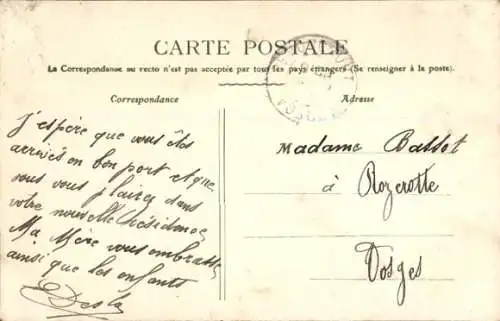 CARTE POSTALE
La Correspondance au recto n'est pas acceptée par tous les pays étrangers (Se renseigner à la poste).
Correspondance
J'espère que vous êtes
arrivés en bon port et que
vous vous plairez dans
votre nouvelle résidence
Ma Mère vous embrasse
ainsi que les enfants
Adresse
Madame Bassot
à
Rozerotte
Vosges
VOSGES